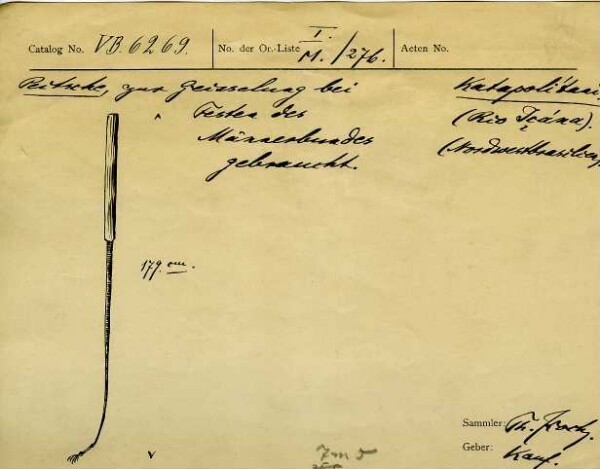 Catalog No. VB. 6269. No. der Or.-Liste I. M./276. Acten No.
Peitsche, zur Geisselung bei
Festen des
Männerbundes
gebraucht.
Katapolítani
(Rio Içána).
(Nordwestbrasilien)
179. cm.
Sammler: Th. Koch.
Geber: Kauf.